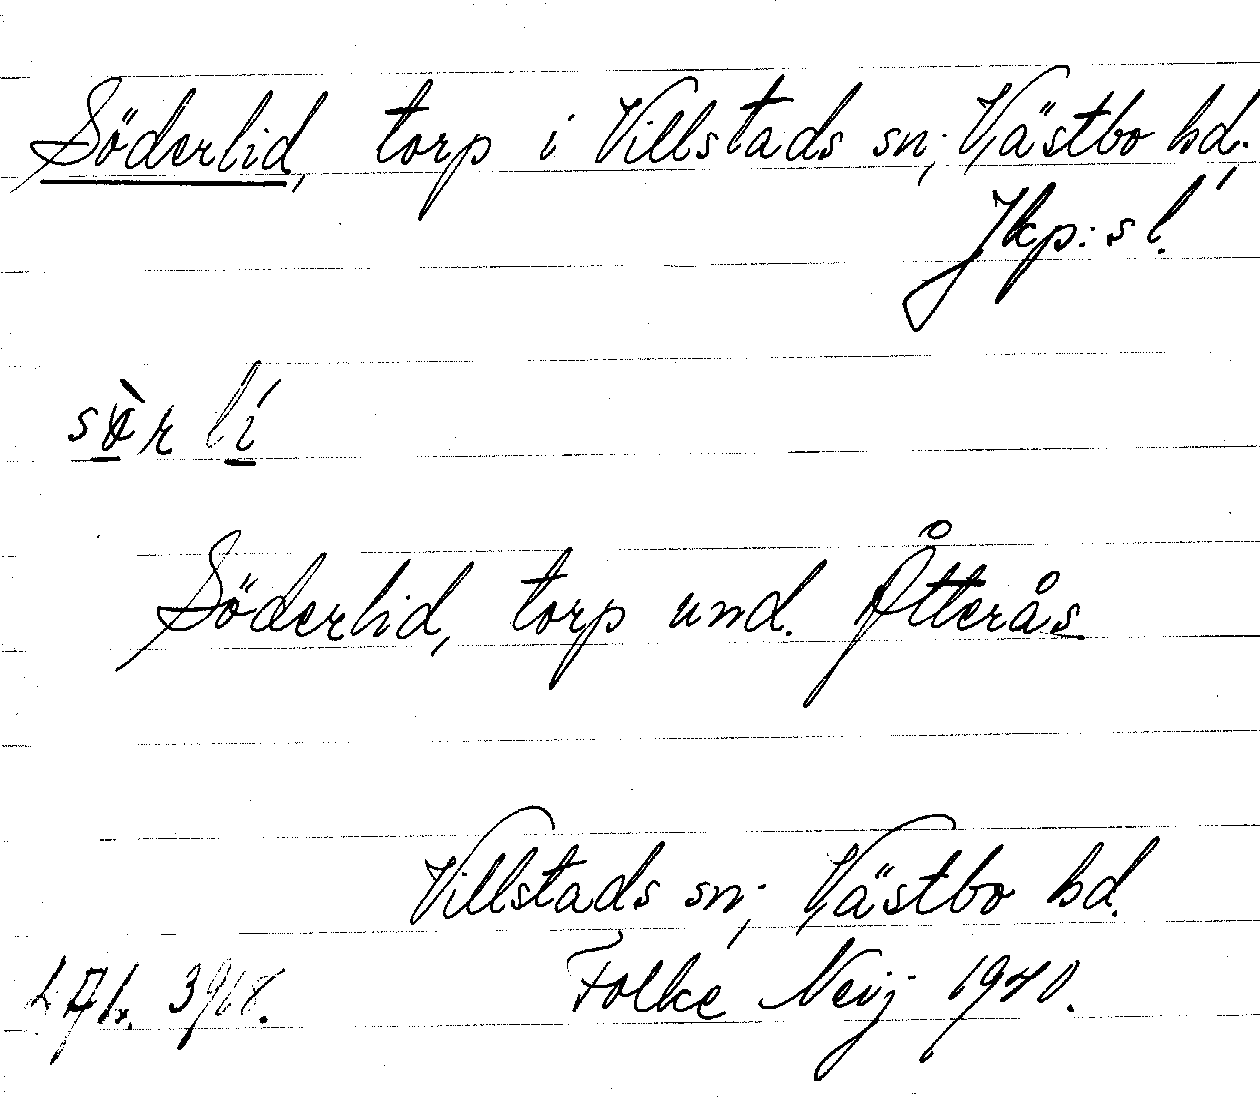 Söderlid, torp i Villstads sn; Västbo hd;
Jkp:s l.
lí
Söderlid, torp und. Åtterås
Villstads sn; Västbo hd.
Folke Neij 1940.
3968.